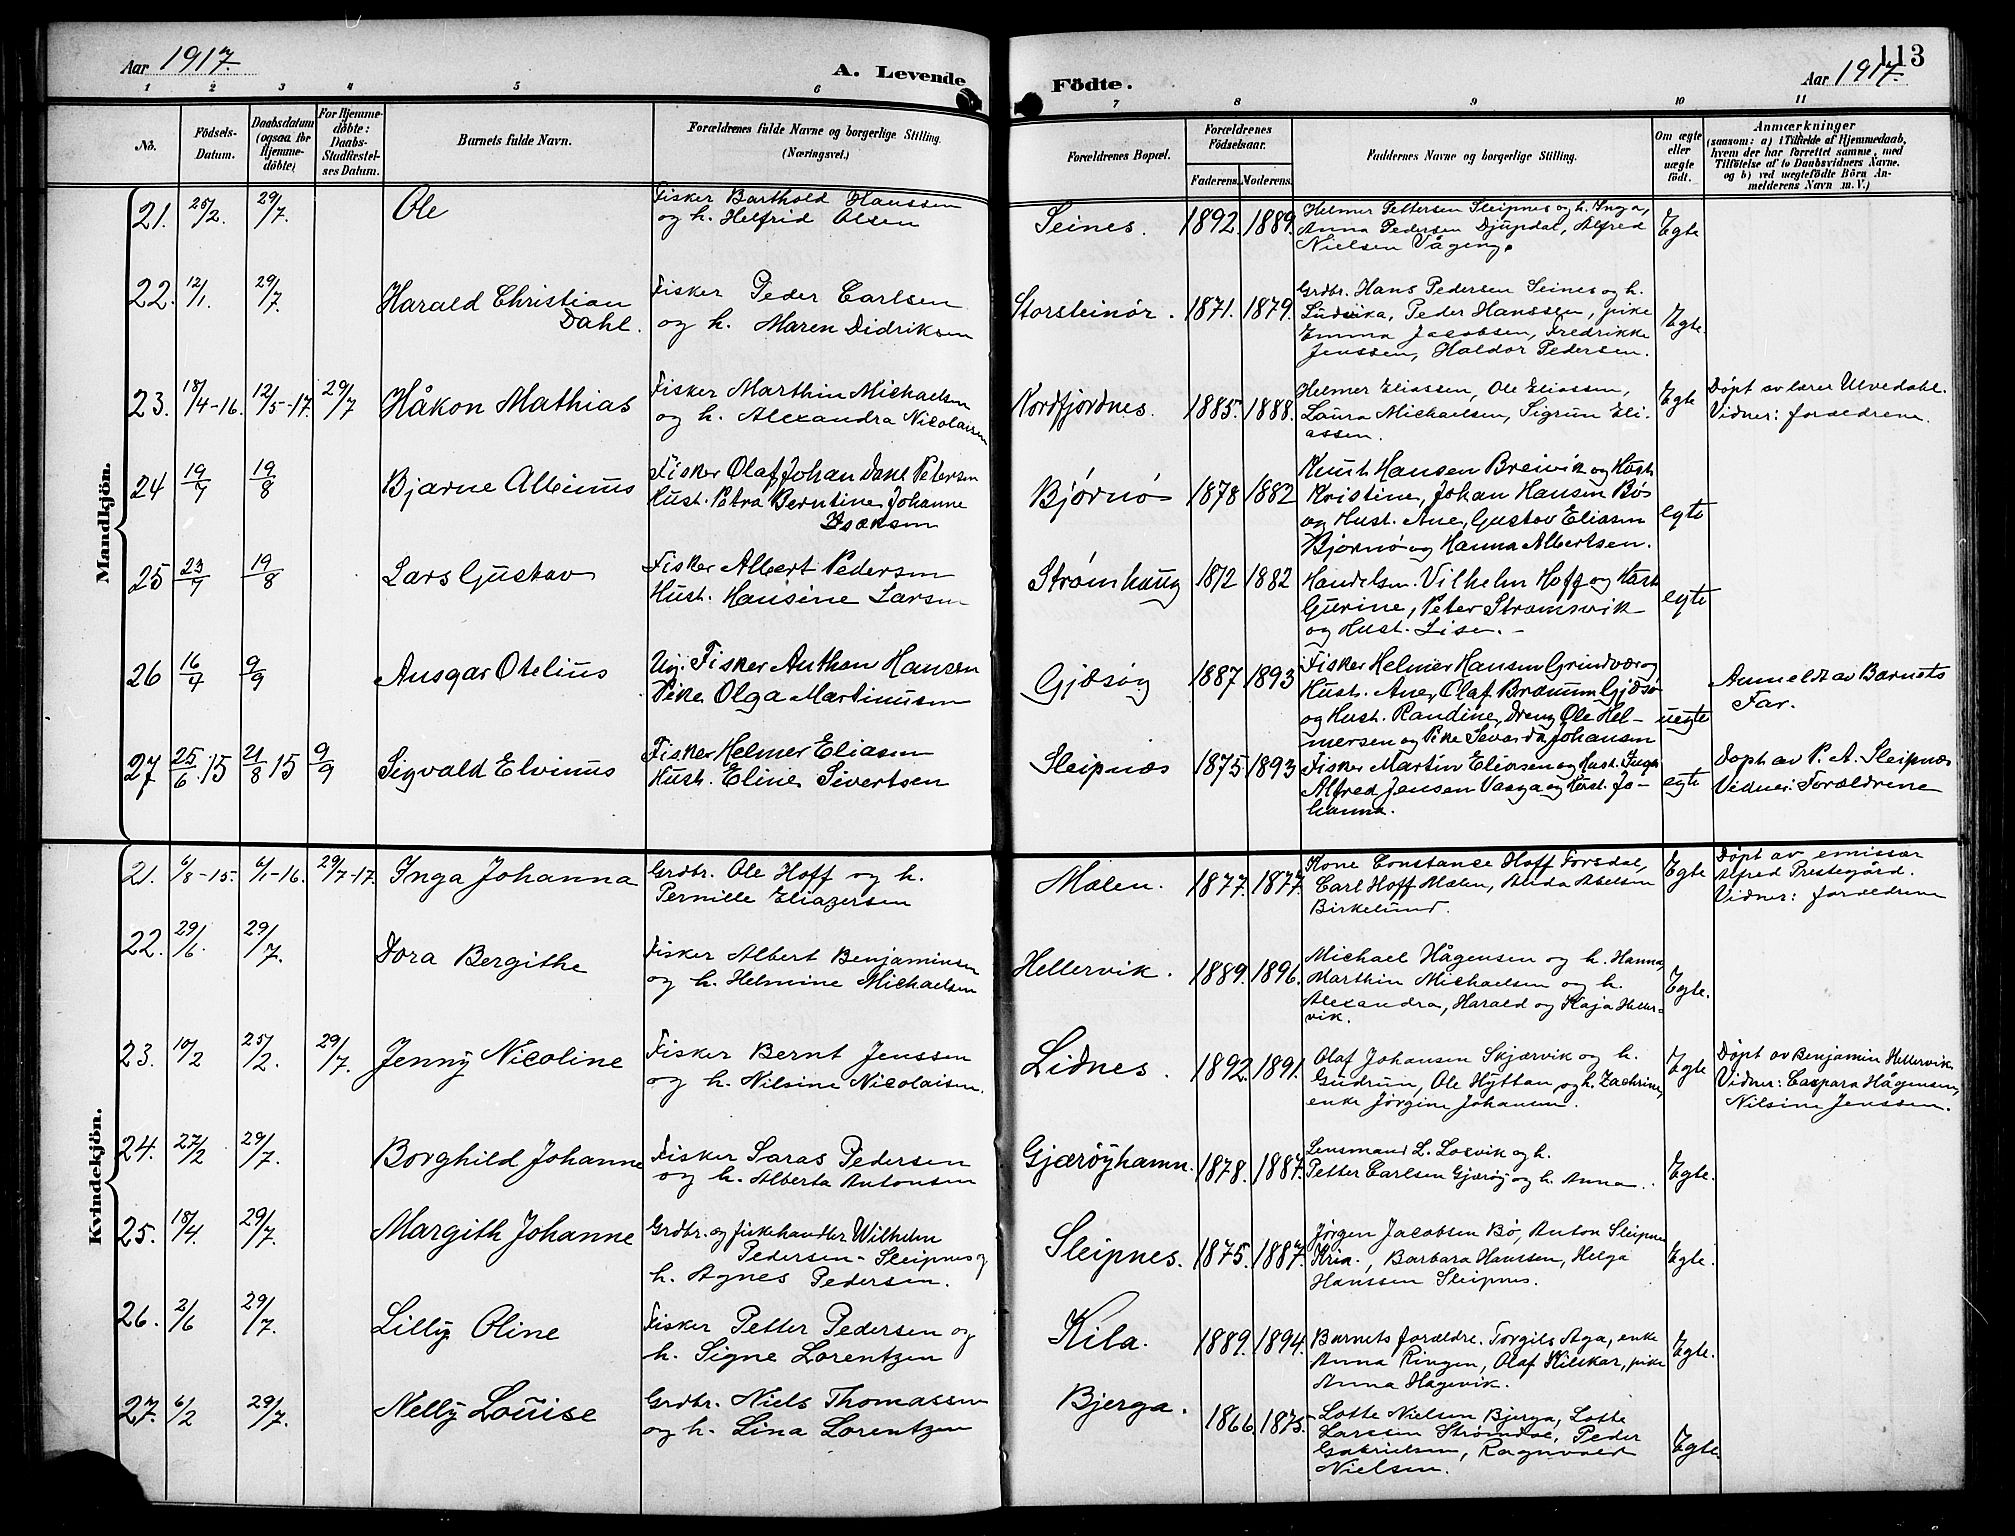 Aar 1917.
A. Levende
Födte.
113
Aar 1917.
1 2 3 4 5 6 7 8 9 10 11
No.
Födsels-
Datum.
Daabsdatum
(ogsaa for
Hjemme-
döbte)
For Hjemme-
döbte:
Daabs-
Stadfæstel-
ses Datum.
Barnets fulde Navn.
Forældrenes fulde Navne og borgerlige Stilling.
(Næringsvei.)
Forældrenes Bopæl.
Forældrenes
Födselsaar.
Faderens. Moderens.
Faddernes Navne og borgerlige Stilling.
Om ægte
eller
uægte
födt.
Anmærkninger
(saasom: a) i Tilfælde af Hjemmedaab,
hvem der har forrettet samme, med
Tilföielse af to Daabsvidners Navne,
og b) ved uægtefödte Börn An-
melderens Navn m. V.)
Mandkjön.
21. 25/2. 29/7. Ole
Fisker Barthold Hanssen
og h. Helfrid Olsen
Seines. 1892. 1889.
Helmer Pettersen Sleipnes og h. Inga,
Anna Pedersen Djupdal, Alfred
Nielsen Våging.
Egte
22. 12/1. 29/7. Harald Christian
Dahl.
Fisker Peder Carlsen
og h. Maren Didriksen
Storsteinør. 1871. 1879.
Grdbr. Hans Pedersen Seines og h.
Ludvika, Peder Hanssen, pike
Emma Jacobsen, Fredrikke
Jenssen, Haldor Pedersen.
Egte.
23. 18/4-16. 12/5-17. 29/7 Håkon Mathias
Fisker Marthin Michaelsen
og h. Alexandra Nicolaisen
Nordfjordnes. 1885. 1888.
Helmer Eliassen, Ole Eliassen,
Laura Michaelsen, Sigrun Eli-
assen.
Egte
Døpt av lærer Ulvedahl.
Vidner: forældrene.
24 19/7 19/8 Bjarne Albinus
Fisker Olaf Johan Dahl Petersen
Hust. Petra Berntine Johanne
Isaksen
Bjørnø 1878 1882
Knut Hansen Breivik og Hust.
Kristine, Johan Hansen Bøs
og Hust. Ane, Gustav Eliasen
Bjørnø og Hanna Albertsen.
egte
25 23/7 19/8 Lars Gustav
Fisker Albert Pedersen
Hust. Hansine Larsen
Strømhaug 1872 1882
Handelsm. Vilhelm Hoff og Hust.
Gurine, Peter Strømsvik
og Hust. Lise. -
egte
26 16/7 9/9 Ansgar Otelius
Ug. Fisker Anthon Hansen
Pike Olga Martinusen
Gjæsøy 1887 1893
Fisker Helmer Hansen Grindvær og
Hust. Ane, Olaf Bræmm Gjæsø
og Hust. Randine, Dreng Ole Hel-
mersen og Pike Sevarda Johansen
uegte
Anmeldt av Barnets
Far.
27 25/6 15 21/8 15 9/9 Sigvald Elvinus
Fisker Helmer Eliasen
Hust. Eline Sivertsen
Sleipnæs 1875 1893
Fisker Martin Eliasen og Hust. Inga
Alfred Jensen Vaaga og Hust. Jo-
hanna.
egte
Døpt av P. A. Sleipnæs
Vidner: Forældrene
Kvindekjön.
21. 6/8-15. 6/1-16. 29/7-17. Inga Johanna
Grdbr. Ole Hoff og h.
Pernille Eliazersen
Mælen. 1877. 1877.
Kone Constanse Hoff Forsdal,
Carl Hoff Mælen, Alida Abelsen
Birkelund.
Egte
Døpt av emissær
Alfred Prestegård.
Vidner: forældrene
22. 29/6. 29/7. Dora Bergithe
Fisker Albert Benjaminsen
og h. Helmine Michaelsen
Hellervik. 1889. 1896.
Michael Hågensen og h. Hanna,
Marthin Michaelsen og h.
Alexandra, Harald og Kaja Heller-
vik.
Egte.
23. 10/2 25/2. 29/7. Jenny Nicoline
Fisker Bernt Jenssen
og h. Nilsine Nicolaisen.
Lidnes. 1892. 1891.
Olaf Johansen Skjærvik og h.
Gudrun, Ole Hyttan og h. Zachrine,
enke Jørgine Johansen.
Egte
Døpt av Benjamin Hellervik.
Vidner: Caspara Hågensen,
Nilsine Jenssen.
24. 27/2 29/7. Borghild Johanne
Fisker Saras Pedersen
og h. Alberta Antonsen
Gjærøyhamn. 1878. 1887.
Lensmand L. Losvik og h.
Petter Carlsen Gjærøy og h. Anna.
Egte.
25. 18/4. 29/7. Margith Johanne
Grdbr. og fiskehandler Wilhelm
Pedersen-Sleipnes og
h. Agnes Pedersen.
Sleipnes. 1875. 1887.
Jørgen Jacobsen Bø, Anton Sleipnes
Kria., Barbara Hanssen, Helga
Hanssen Sleipnes.
Egte.
26. 2/6 29/7. Lilly Oline
Fisker Petter Pedersen og
h. Signe Lorentzen
Kila. 1889. 1894.
Barnets forældre. Torgils Aga, enke
Anna Ringen, Olaf Kilskar, pike
Anna Hagevik.
Egte.
27. 6/2 29/7. Nelly Louise
Grdbr. Niels Thomassen
og h. Lina Lorentzen
Bjerga. 1866. 1875.
Lotte Nielsen Bjerga, Lotte
Larssen Strømdal, Peder
Gabrielsen, Ragnvald
Nielsen.
Egte.